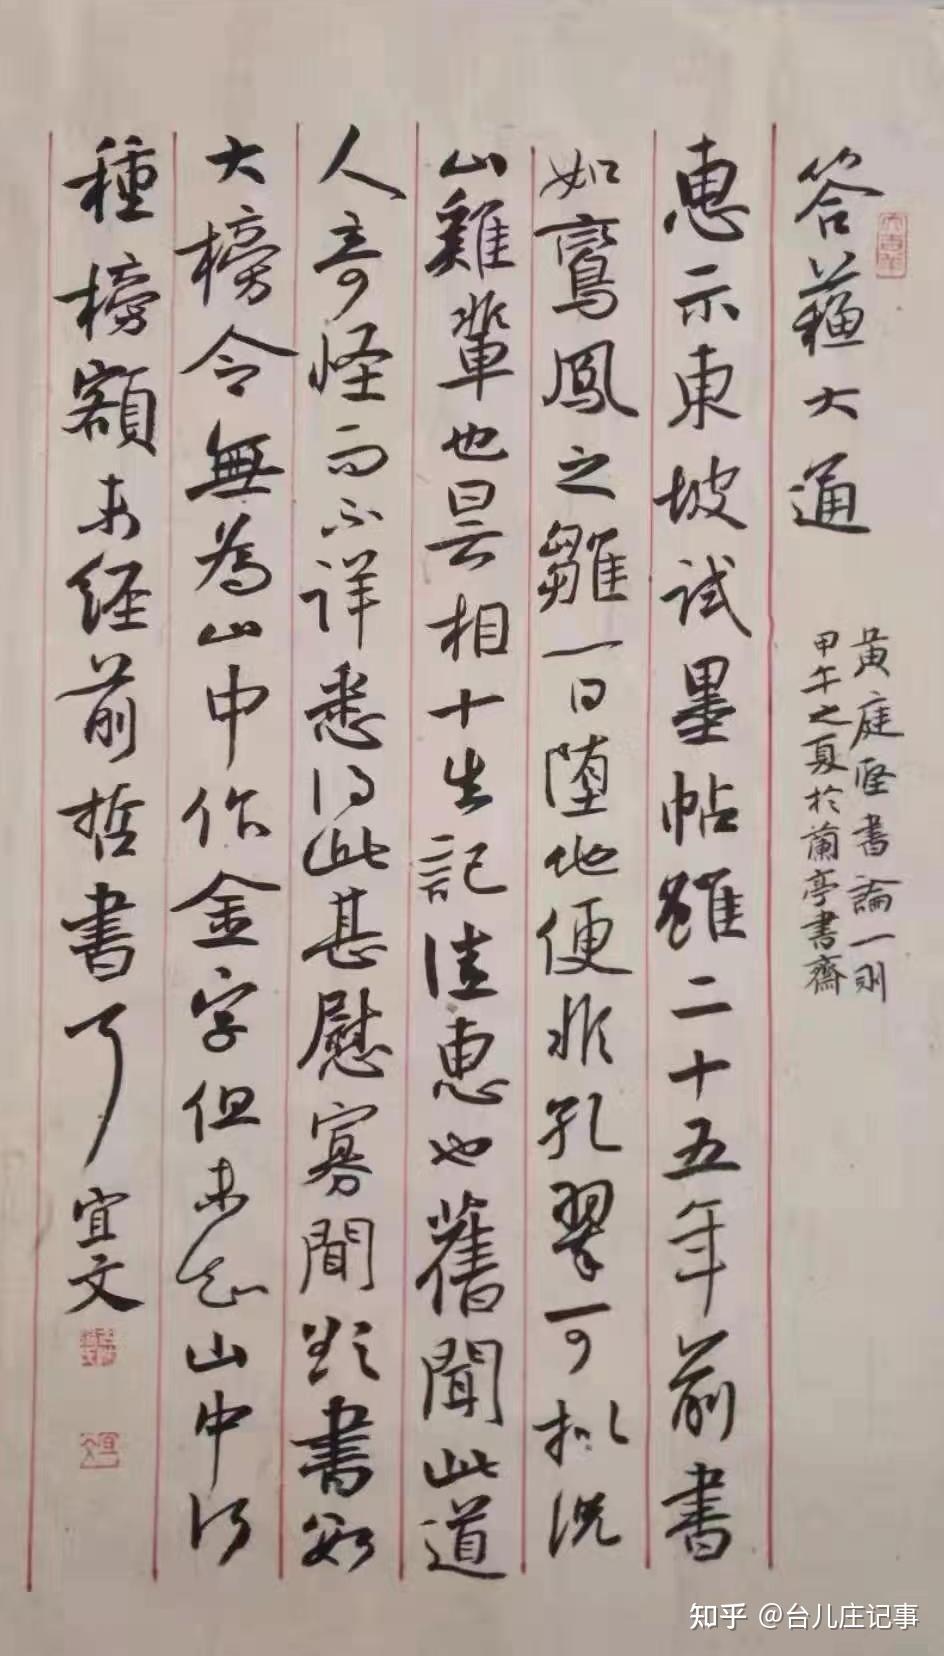 答蘇大通
黃庭堅書論一則
甲午之夏於蘭亭書齋
惠示東坡試墨帖雖二十五年前書
如鸞鳳之雛一日墮地便非孔翠可擬況
山雞輩也曇相十生記佳惠也舊聞此道
人奇怪而不詳悉得此甚慰寡聞欲書數
大榜令無為山中作金字但未知山中何
種榜額未經前哲書耳 宜文
知乎 @台儿庄记事